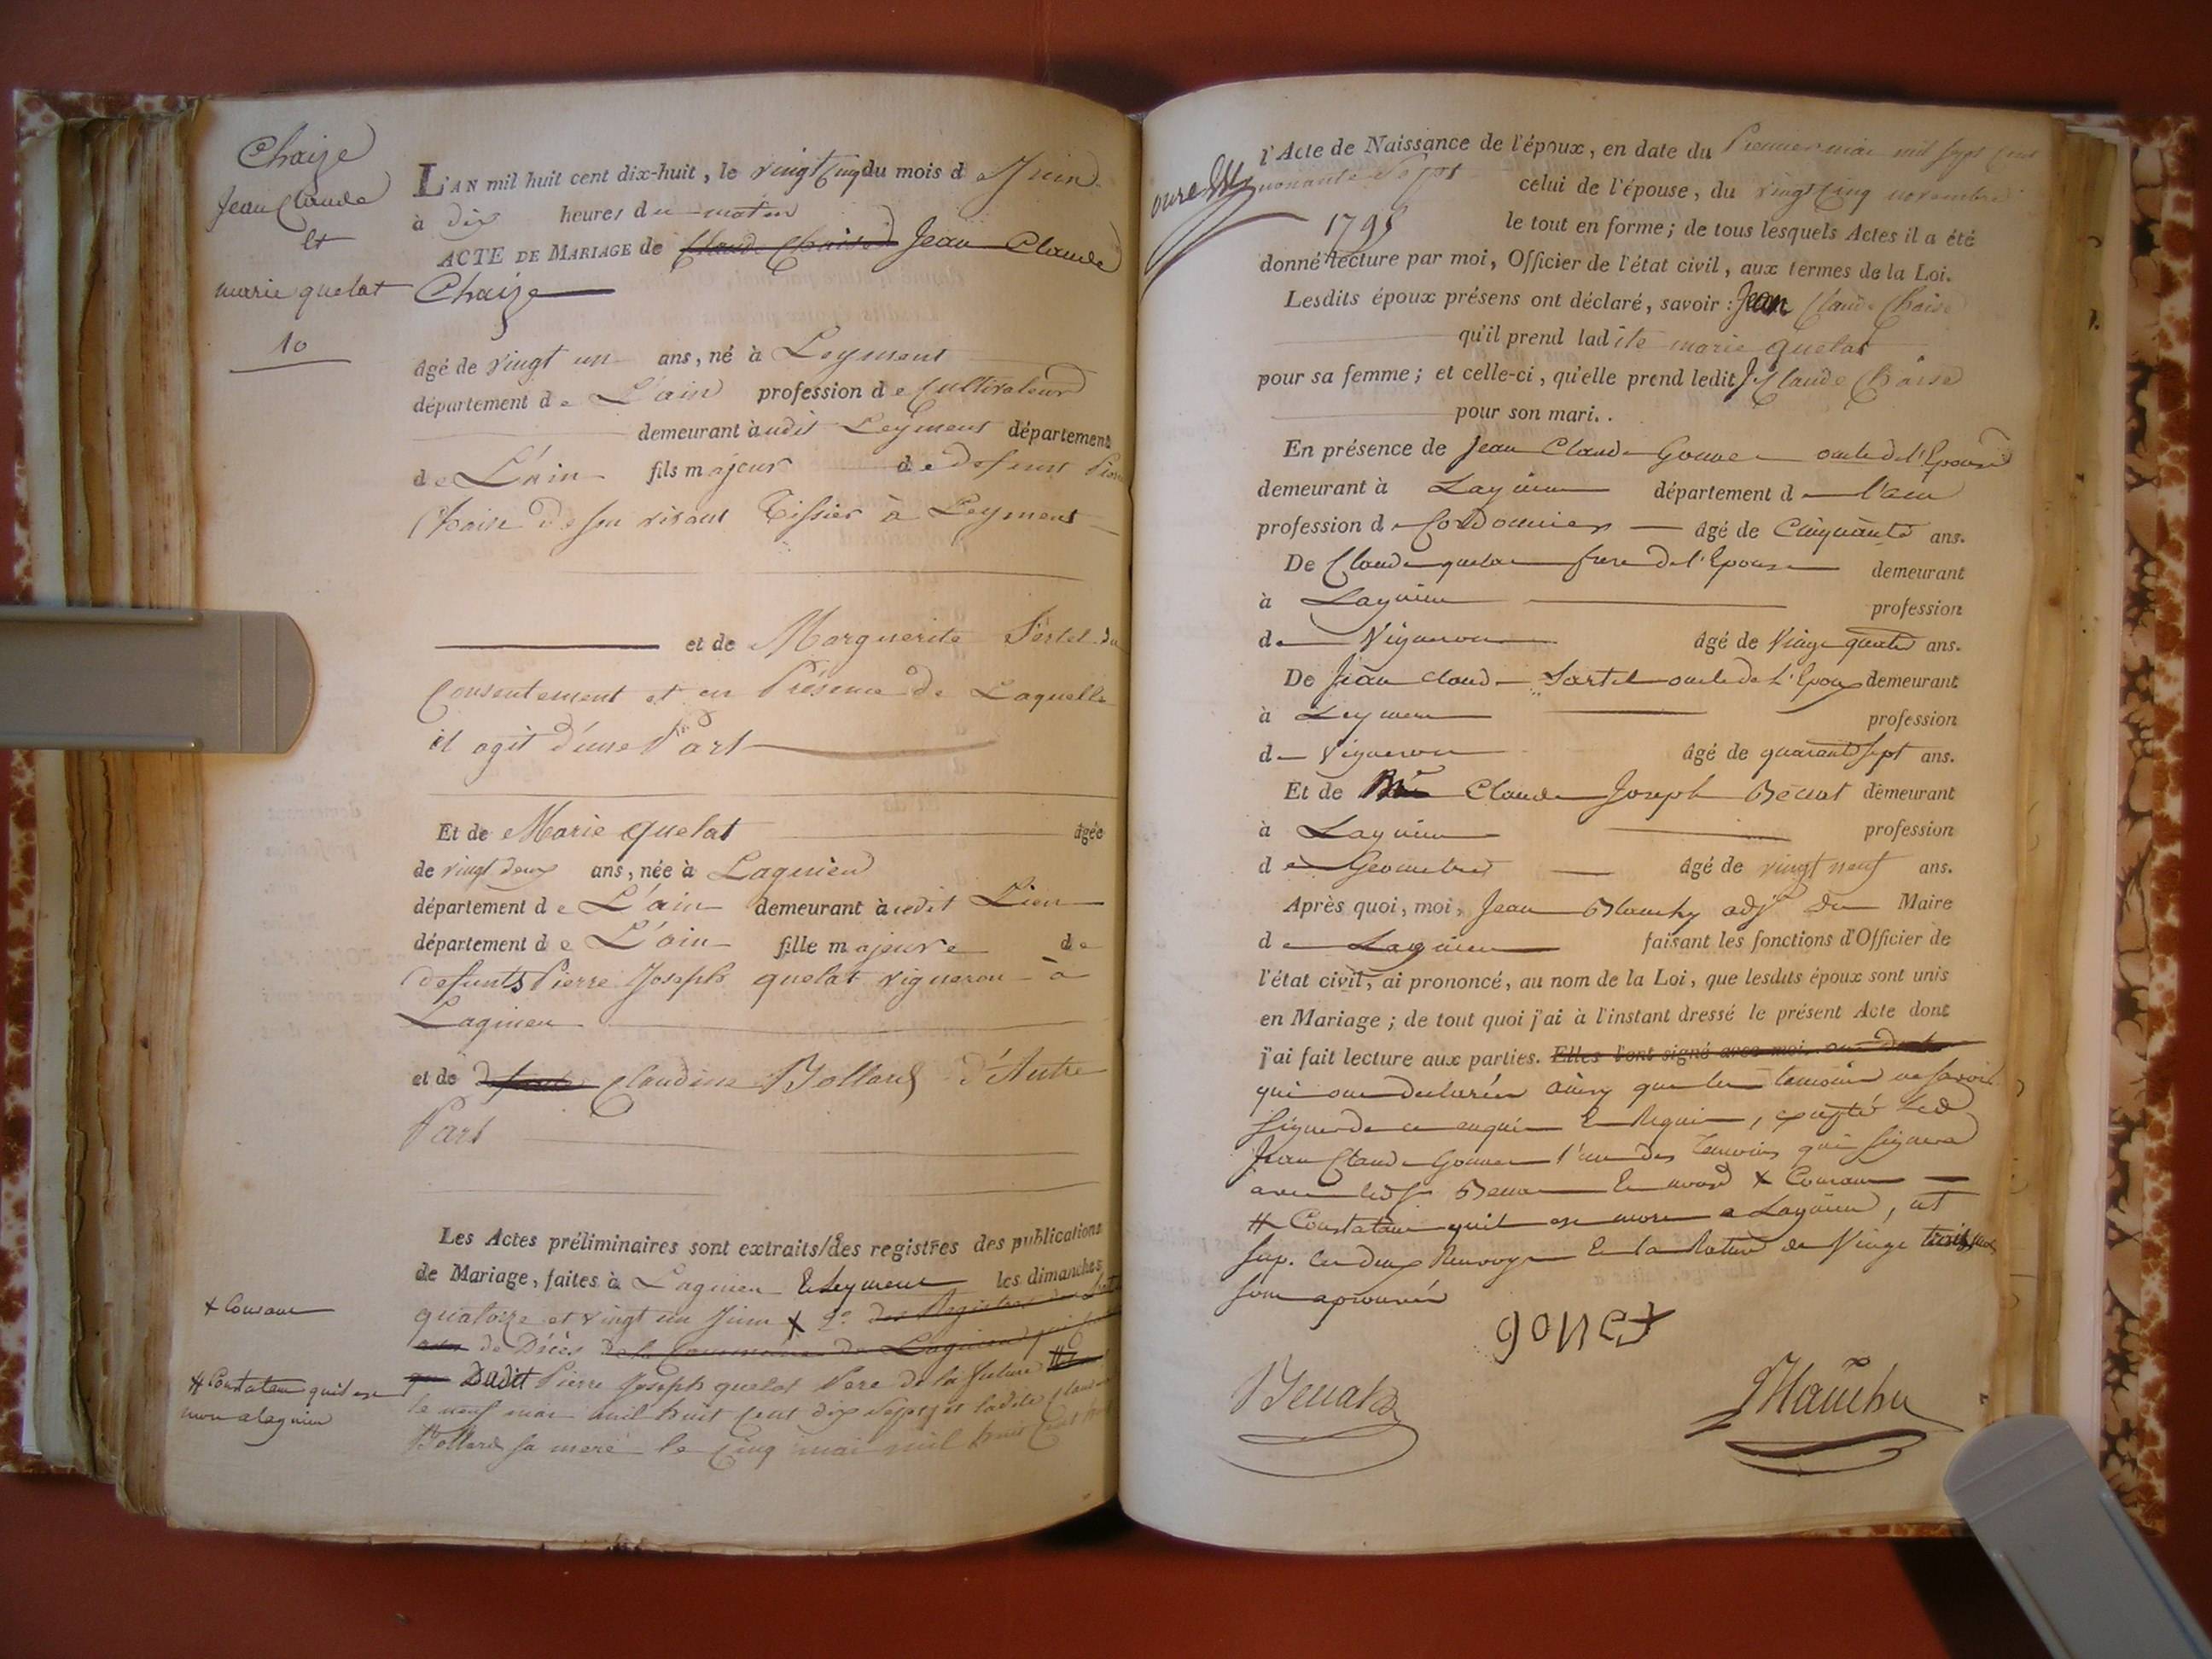 Chaize
Jean Claude
et
marie quelat
10
L'AN mil huit cent dix-huit, le vingt Cinq du mois d Juin
à dix heures du matin
ACTE DE MARIAGE de Claude Chaise Jean Claude
Chaize
âgé de vingt un ans, né à Leyment
département de L'ain profession de Cultivateur
demeurant audit Leyment département
de L'ain fils majeur de defunt
Chaise de son vivant Tissier à Leyment
et de Marguerite Sertel du
Consentement et en Présence de Laquelle
il agit d'une Part
Et de Marie quelat âgée
de vingt deux ans, née à Lagnieu
département de L'ain demeurant audit Lieu
département de L'ain fille majeure de
defunts Pierre Joseph quelat vigneron à
Lagnieu
et de defunte Claudine Bollard d'Autre
Part
Les Actes préliminaires sont extraits des registres des publications
de Mariage, faites à Lagnieu & Leyment les dimanches
quatorze et vingt un Juin x 2° des Registres
de Décès de la Commune de Lagnieu
Dudit Pierre Joseph quelat Pere de la future #
le neuf mai mil huit Cent dix Sept et ladite
Bollard sa mere le Cinq mai mil huit Cent
x Courant
# Constatant quil est
mort a lagnieu
l'Acte de Naissance de l'époux, en date du Premier mai mil sept Cent
nonante Sept celui de l'épouse, du vingt Cinq novembre
1795 le tout en forme; de tous lesquels Actes il a été
donné lecture par moi, Officier de l'état civil, aux termes de la Loi.
Lesdits époux présens ont déclaré, savoir: Jean Claude Chaise
qu'il prend ladite marie quelat
pour sa femme; et celle-ci, qu'elle prend ledit J Claude Chaise
pour son mari..
En présence de Jean Claude Gonnet oncle de l'Epouse
demeurant à Lagnieu département de l'ain
profession de Cordonnier âgé de Cinquante ans.
De Claude quelat frere de l'Epouse demeurant
à Lagnieu profession
de Vigneron âgé de Vingt quatre ans.
De Jean Claude Sartel oncle de L'Epoux demeurant
à Leyment profession
de Vigneron âgé de quarante sept ans.
Et de Claude Joseph Benat demeurant
à Lagnieu profession
de Geometre âgé de vingt neuf ans.
Après quoi, moi, Jean Blanchy adjt Du Maire
de Lagnieu faisant les fonctions d'Officier de
l'état civil, ai prononcé, au nom de la Loi, que lesdits époux sont unis
en Mariage; de tout quoi j'ai à l'instant dressé le présent Acte dont
j'ai fait lecture aux parties. Elles l'ont signé avec moi
qui ont declarés ainsy que les temoins ne savoir
signer de ce enquis & Requis, excepté led
Jean Claude Gonnet l'un des temoins qui signera
avec led Sr Benat & nous x Courant
# Constatant quil est mort a Lagnieu, et
les deux Renvoys & la Rature de Vingt trois mots
sont aprouvés
gonet
Benat
Blanchy